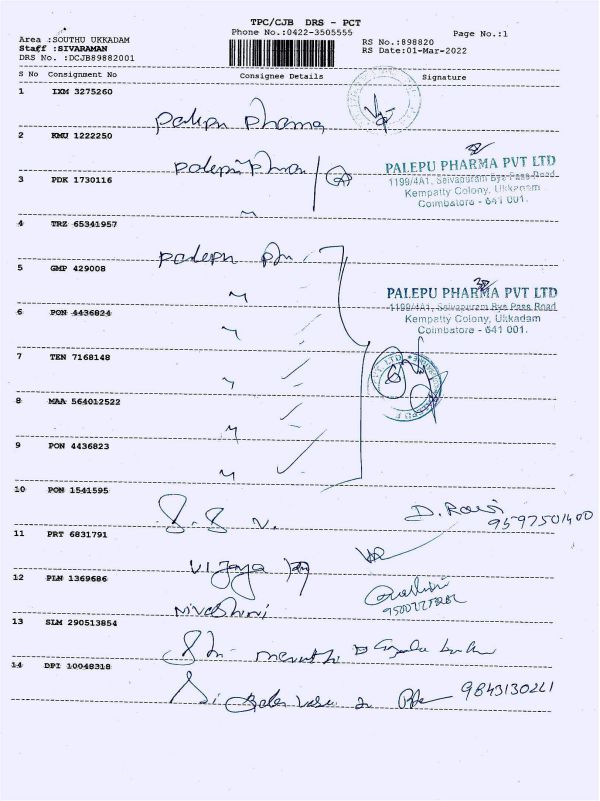 TPC/CJB DRS - PCT
Phone No.:0422-3505555
Page No.:1
Area :SOUTHU UKKADAM
Staff :SIVARAMAN
DRS No. :DCJB89882001
RS No.:898820
RS Date:01-Mar-2022
S No Consignment No Consignee Details Signature
1 IXM 3275260
palepu pharma
2 KMU 1222250
palepu pharma
PALEPU PHARMA PVT LTD
1199/4A1, Selvapuram Bye Pass Road
Kempatty Colony, Ukkadam
Coimbatore - 641 001.
3 PDK 1730116
4 TRZ 65341957
palepu
5 GMP 429008
PALEPU PHARMA PVT LTD
1199/4A1, Selvapuram Bye Pass Road
Kempatty Colony, Ukkadam
Coimbatore - 641 001.
6 PON 4436824
7 TEN 7168148
8 MAA 564012522
9 PON 4436823
10 PON 1541595
S. S V.
D. Ravi
9597501400
11 PRT 6831791
Vijaya
12 PLN 1369686
Nivashini
13 SLM 290513854
14 DPI 10048318
Sri
9843130221